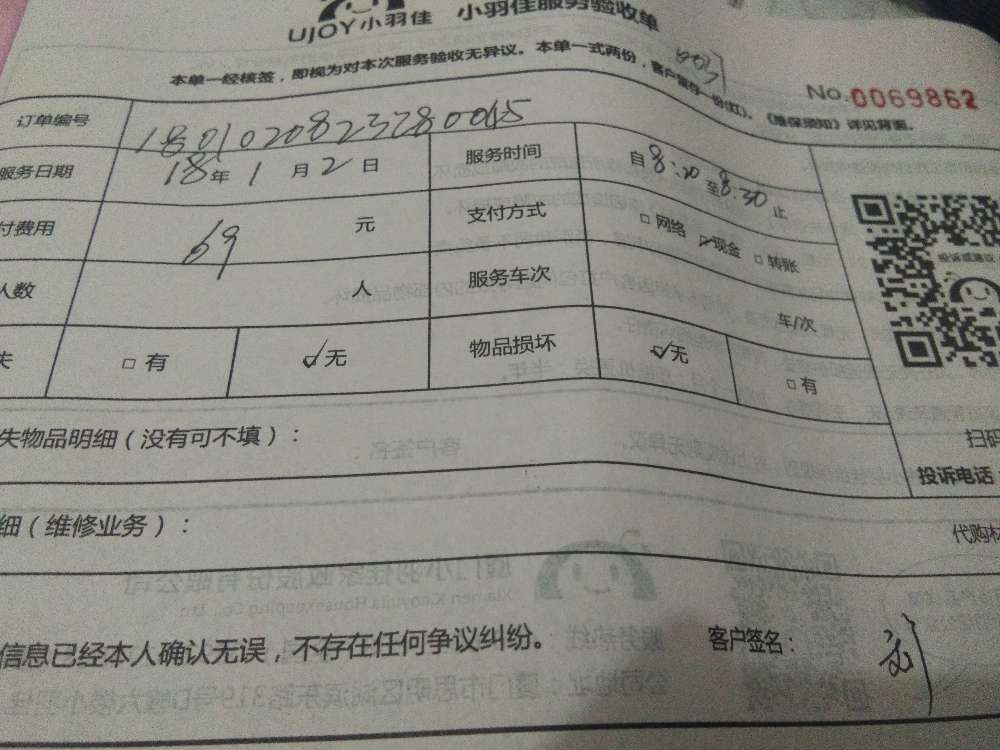 UJOY小羽佳 小羽佳服务验收单
本单一经核签，即视为对本次服务验收无异议。本单一式两份，客户留存一份(红)。《维保须知》详见背面。
No.0069862
订单编号 1801020823280045
服务日期 18年1月2日 服务时间 自8:20至8:30止
付费用 69 元 支付方式 □网络 ☑现金 □转账
人数 人 服务车次 车/次
失 □有 ☑无 物品损坏 ☑无 □有
投诉或建议
失物品明细（没有可不填）：
扫码
投诉电话
细（维修业务）：
代购材
信息已经本人确认无误，不存在任何争议纠纷。 客户签名： 刘